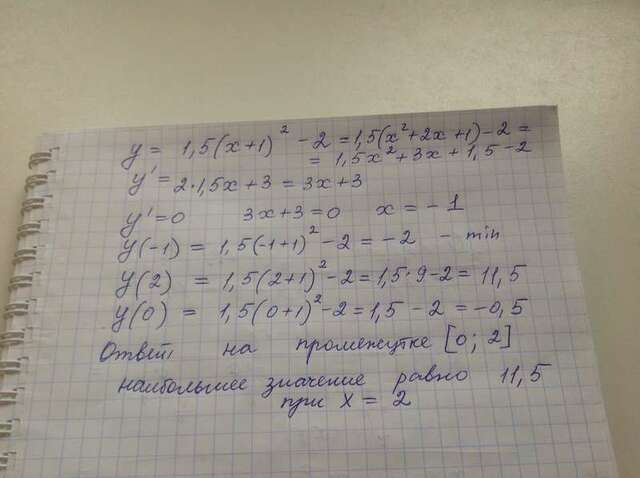 y = 1,5(x+1)² - 2 = 1,5(x²+2x+1)-2 =
= 1,5x²+3x+1,5-2
y' = 2·1,5x+3 = 3x+3
y'=0 3x+3=0 x = -1
y(-1) = 1,5(-1+1)²-2 = -2 - min
y(2) = 1,5(2+1)²-2=1,5·9-2= 11,5
y(0) = 1,5(0+1)²-2=1,5 - 2 = -0,5
Ответ: на промежутке [0; 2]
наибольшее значение равно 11,5
при x = 2